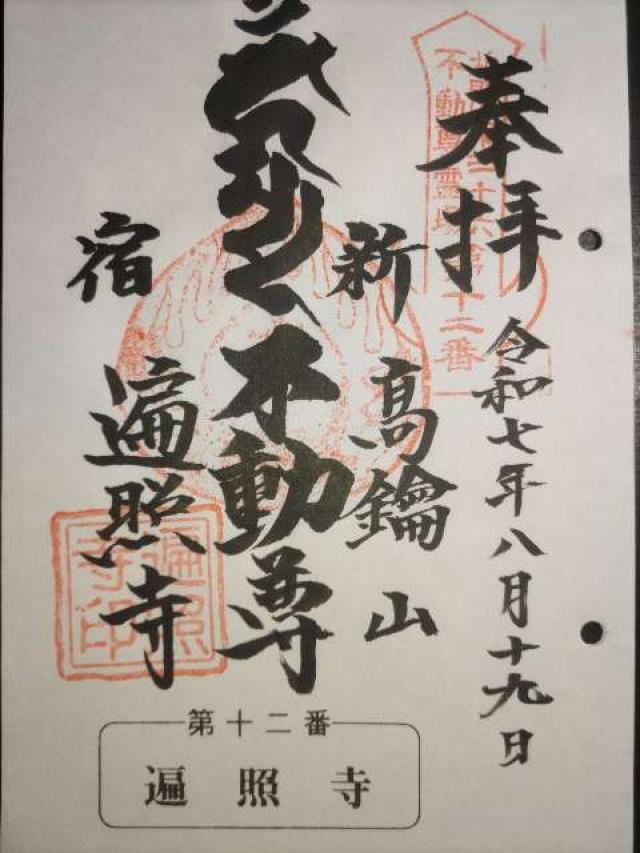 奉拝
令和七年八月十九日
不動尊霊場
第十二番
新高鑰山
不動尊
宿
遍照寺
遍照
寺印
第十二番
遍照寺